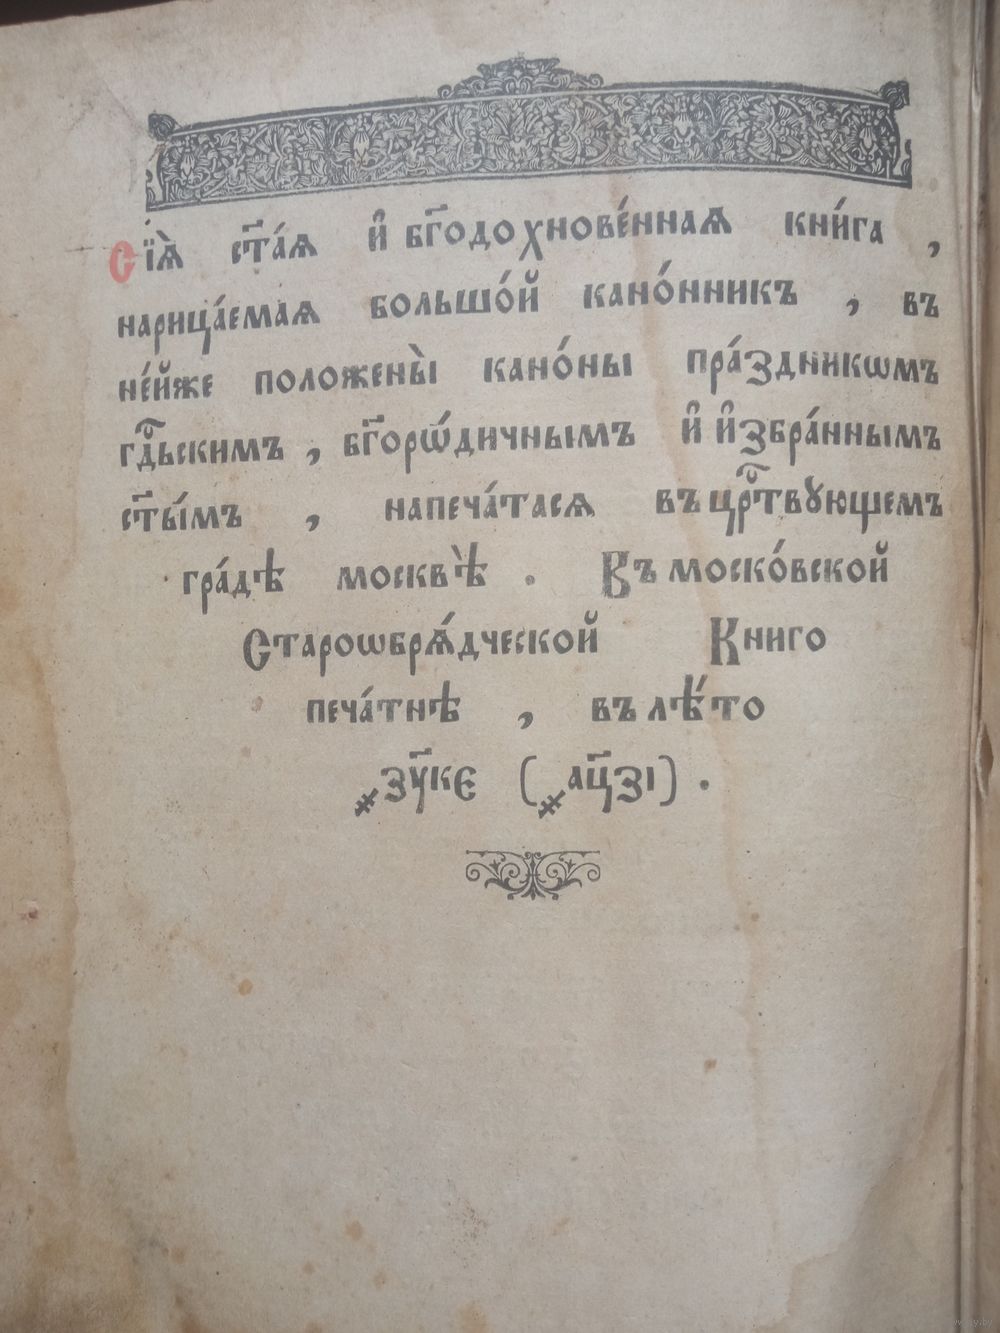 Сїѧ̀ ст҃а́ѧ и҆ бг҃одохнове́ннаѧ кни́га ,
нарица́емаѧ большо́й кано́нникъ , въ
не́йже положены̀ кано́ны пра́здникѡмъ
гдⷭ҇ьскимъ , бг҃орѡ́дичнымъ и҆ и҆збра́ннымъ
ст҃ы́мъ , напеча́тасѧ въ црⷭ҇твꙋющемъ
гра́дѣ москвѣ̀ . Въ моско́вской
Старошбрѧ́дческой Книго
печа́тнѣ , въ лѣ́то
҂зу҃ке (҂ац҃зі) .